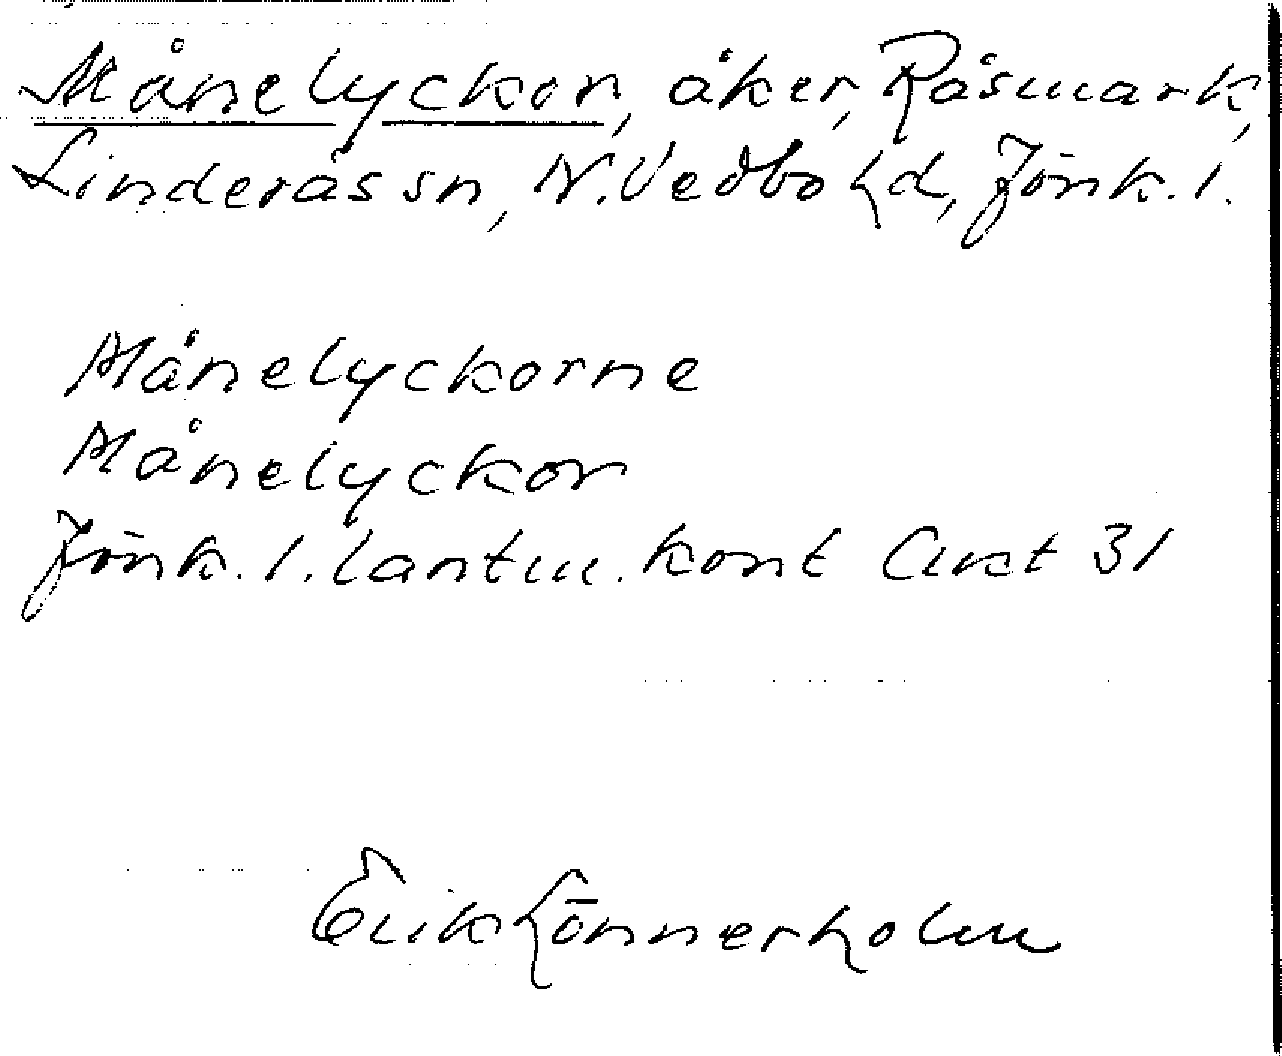 Månelyckor, åker, Råsmark,
Linderås sn, N. Vedbo hd, Jönk. l.
Månelyckorne
Månelyckor
Jönk. l. lantm. kont Akt 31
Erik Lönnerholm